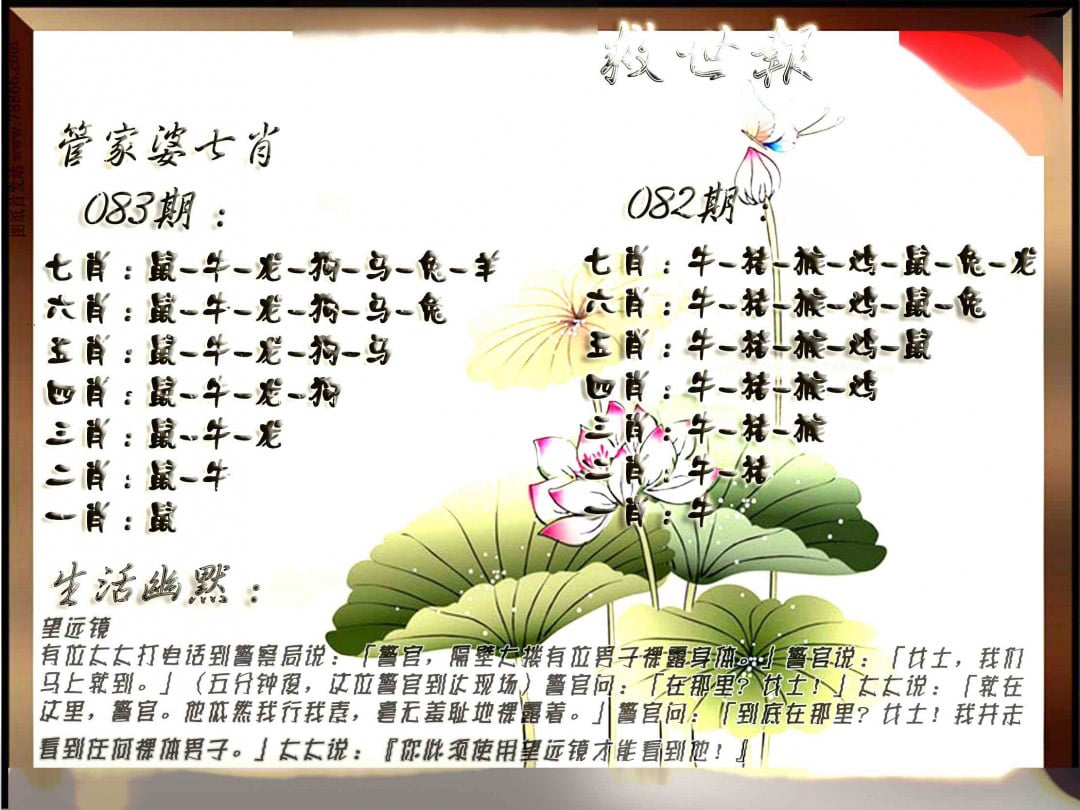 救世報
管家婆七肖
083期：
七肖：鼠-牛-龙-狗-马-兔-羊
六肖：鼠-牛-龙-狗-马-兔
五肖：鼠-牛-龙-狗-马
四肖：鼠-牛-龙-狗
三肖：鼠-牛-龙
二肖：鼠-牛
一肖：鼠
082期：
七肖：牛-猪-猴-鸡-鼠-兔-龙
六肖：牛-猪-猴-鸡-鼠-兔
五肖：牛-猪-猴-鸡-鼠
四肖：牛-猪-猴-鸡
三肖：牛-猪-猴
二肖：牛-猪
一肖：牛
生活幽默：
望远镜
有位太太打电话到警察局说：「警官，隔壁大楼有位男子裸露身体。」警官说：「女士，我们
马上就到。」（五分钟后，这位警官到达现场）警官问：「在那里？女士！」太太说：「就在
这里，警官。他依然我行我素，毫无羞耻地裸露着。」警官问：「到底在那里？女士！我并未
看到任何裸体男子。」太太说：『你必须使用望远镜才能看到他！』
图纸首发站 www.78866.com